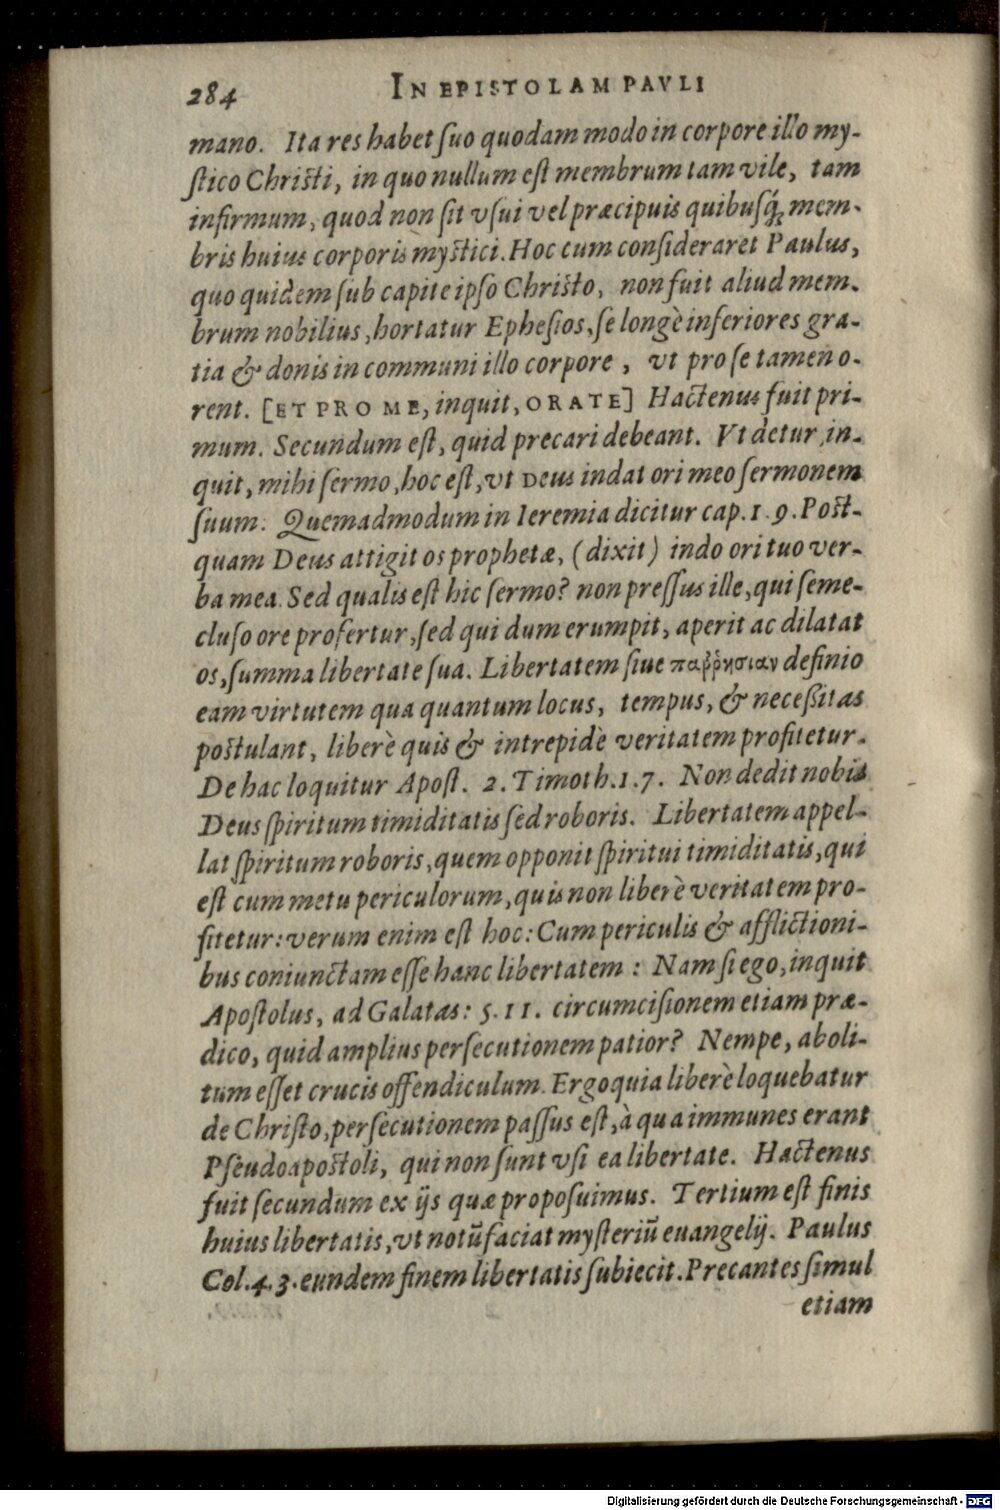 284 IN EPISTOLAM PAVLI
mano. Ita res habet ſuo quodam modo in corpore illo my-
ſtico Chriſti, in quo nullum eſt membrum tam vile, tam
infirmum, quod non ſit vſui vel præcipuis quibuſq́; mem-
bris huius corporis myſtici. Hoc cum conſideraret Paulus,
quo quidem ſub capite ipſo Chriſto, non fuit aliud mem-
brum nobilius, hortatur Epheſios, ſe longè inferiores gra-
tia & donis in communi illo corpore, vt pro ſe tamen o-
rent. [ET PRO ME, inquit, ORATE] Hactenus fuit pri-
mum. Secundum eſt, quid precari debeant. Vt detur, in-
quit, mihi ſermo, hoc eſt, vt Deus indat ori meo ſermonem
ſuum. Quemadmodum in Ieremia dicitur cap. 1. 9. Poſt-
quam Deus attigit os prophetæ, (dixit) indo ori tuo ver-
ba mea. Sed qualis eſt hic ſermo? non preſſus ille, qui ſeme-
cluſo ore profertur, ſed qui dum erumpit, aperit ac dilatat
os, ſumma libertate ſua. Libertatem ſiue παῤῥησιαν definio
eam virtutem qua quantum locus, tempus, & neceſsitas
poſtulant, liberè quis & intrepidè veritatem profitetur.
De hac loquitur Apoſt. 2. Timoth. 1. 7. Non dedit nobis
Deus ſpiritum timiditatis ſed roboris. Libertatem appel-
lat ſpiritum roboris, quem opponit ſpiritui timiditatis, qui
eſt cum metu periculorum, quis non liberè veritatem pro-
fitetur: verum enim eſt hoc: Cum periculis & afflictioni-
bus coniunctam eſſe hanc libertatem: Nam ſi ego, inquit
Apoſtolus, ad Galatas: 5. 11. circumciſionem etiam præ-
dico, quid amplius perſecutionem patior? Nempe, aboli-
tum eſſet crucis offendiculum. Ergo quia liberè loquebatur
de Chriſto, perſecutionem paſſus eſt, à qua immunes erant
Pſeudoapoſtoli, qui non ſunt vſi ea libertate. Hactenus
fuit ſecundum ex ijs quæ propoſuimus. Tertium eſt finis
huius libertatis, vt notũ faciat myſteriũ euangelij. Paulus
Col. 4. 3. eundem finem libertatis ſubiecit. Precantes ſimul
etiam
Digitalisierung gefördert durch die Deutsche Forschungsgemeinschaft - DFG